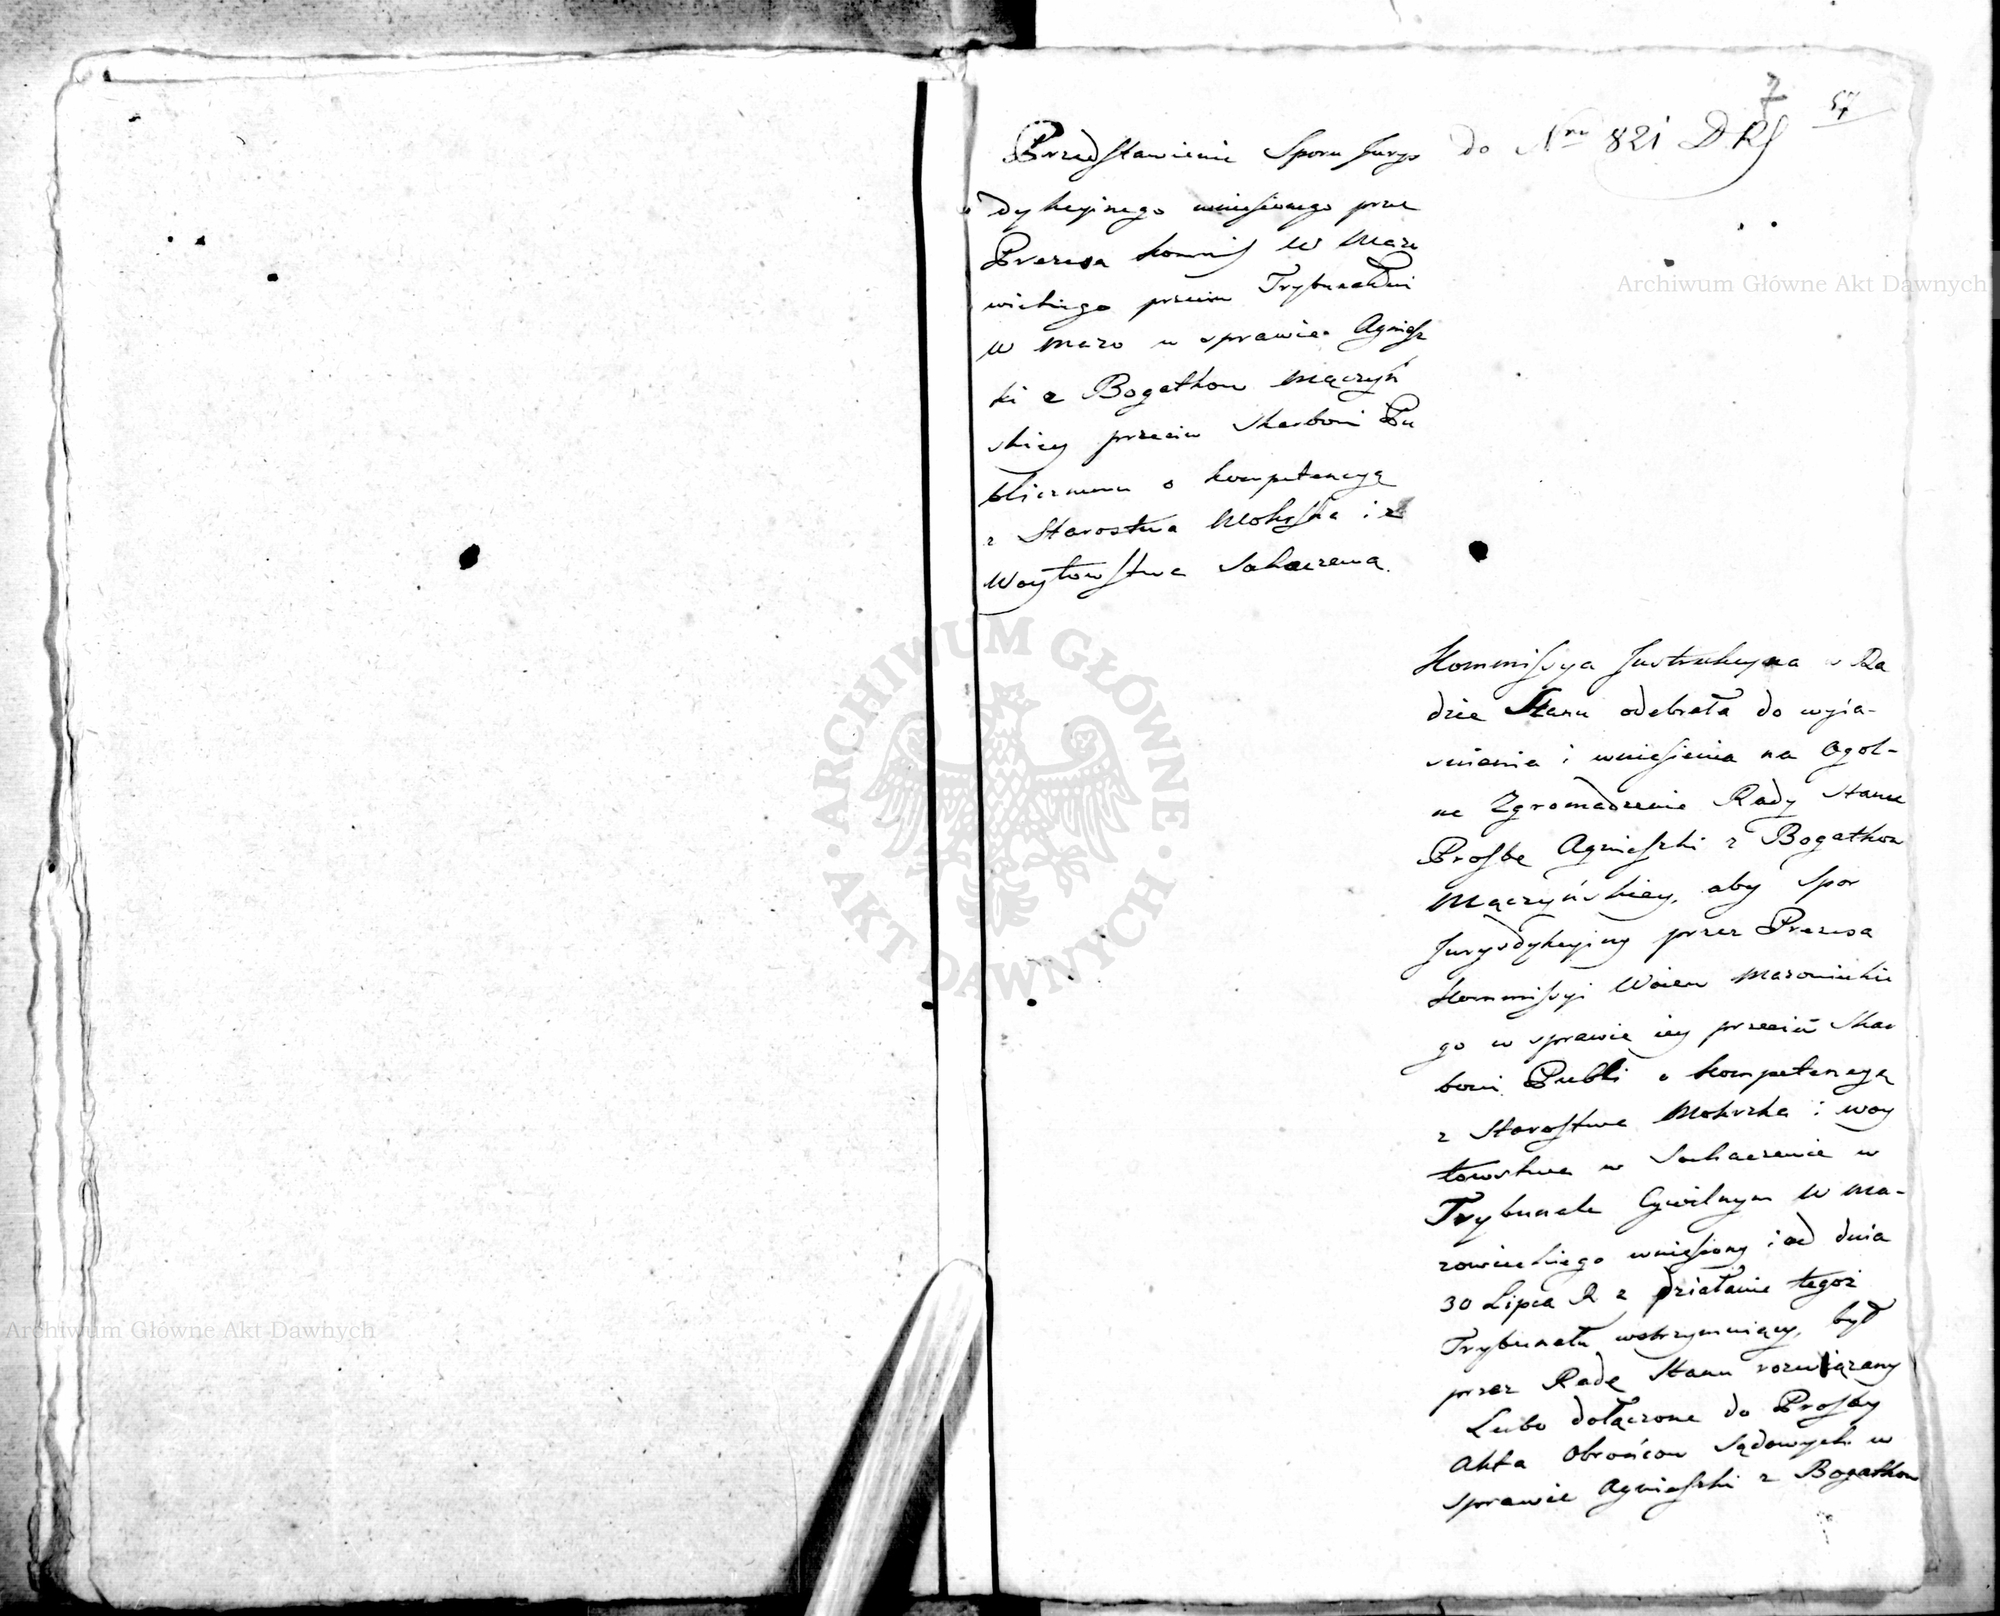 7
57
do Nru 821 DRS
Przedstawienie Sporu Jurys
dykcyinego wniesionego prze
Prezesa Kommis W Mazo
wieckiego przeciw Trybunałowi
W Mazo w sprawie Agniesz
ki z Bogatkow Mączyń
skiey przeciw Skarbowi Pu
blicznemu o kompetencyą
z Starostwa Mokrska i z
Woytowstwa Sochaczewa.
Kommissya Instrukcyjna w Ra
dzie Stanu odebrała do wyia-
snienia i wniesienia na Ogol-
ne Zgromadzenie Rady Stanu
Prosbę Agnieszki z Bogatkow
Mączyńskiey, aby Spor
Jurysdykcyiny przez Prezesa
Kommissyi Woiew Mazowieckie
go w sprawie iey przeciw Skar
bowi Publi o kompetencyą
z Starostwa Mokrska i Woy
towstwa w Sochaczewie w
Trybunale Cywilnym W Ma-
zowieckiego wniesiony i od dnia
30 Lipca R z działanie tegoż
Trybunału wstrzymuiący, był
przez Radę Stanu rozwiązany
Lubo dołączone do Prosby
Akta Obrońcow Sądowych w
sprawie Agnieszki z Bogatkow
Archiwum Główne Akt Dawnych
ARCHIWUM GŁÓWNE
· AKT DAWNYCH ·
Archiwum Główne Akt Dawnych